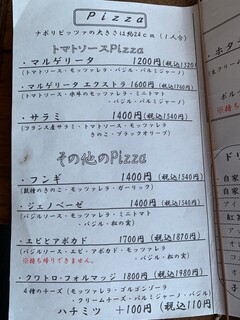 Pizza
ナポリピッツァの大きさは約24cm（1人分）
トマトソースPizza
・マルゲリータ 1200円(税込1320円
(トマトソース・モッツァレラ・バジル・パルミジャーノ)
・マルゲリータ エクストラ 1600円(税込1760円)
(トマトソース・水牛のモッツァレラ・ミニトマト
・バジル・パルミジャーノ)
・サラミ 1400円(税込1540円)
(フランス産サラミ・トマトソース・モッツァレラ
きのこ・ブラックオリーブ)
その他のPizza
・フンギ 1400円(税込1540円)
(数種のきのこ・モッツァレラ・ガーリック)
・ジェノベーゼ 1400円(税込1540円)
(バジルソース・モッツァレラ・ミニトマト
・バジル・松の実)
・エビとアボカド 1700円(税込1870円)
(バジルソース・エビ・アボカド・モッツァレラ
※持ち帰りできません。 ・バジル・松の実)
・クワトロ・フォルマッジ 1800円(税込1980円)
4種のチーズ(モッツァレラ・ゴルゴンゾーラ
・クリームチーズ・パルミジャーノ・バジル)
ハチミツ +100円(税込110円